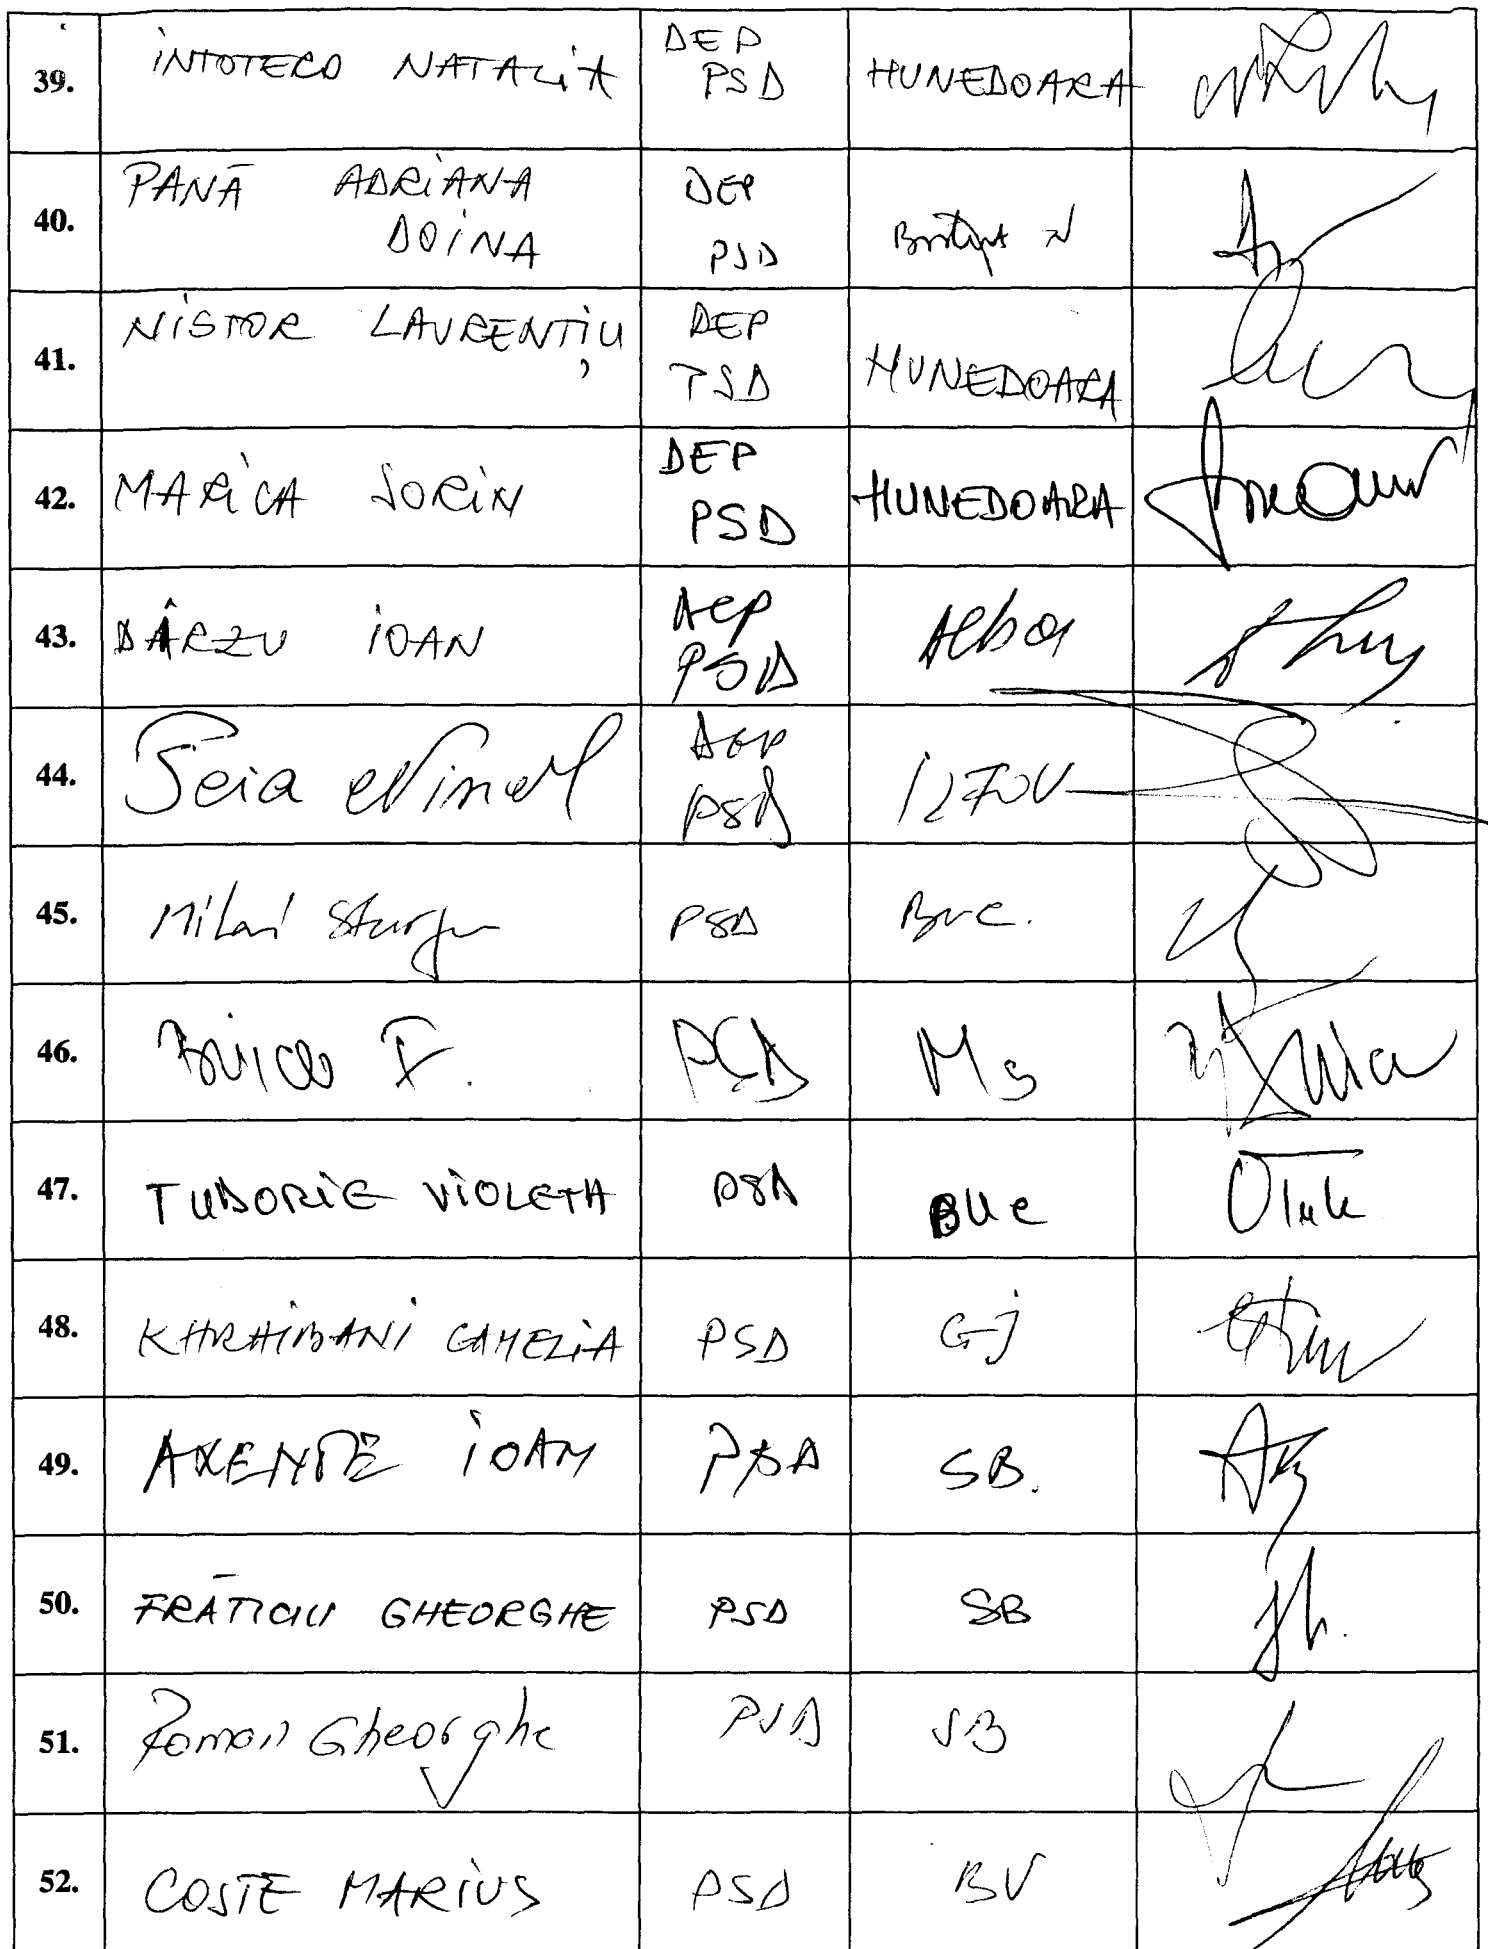 39. INTOTERO NATALIA DEP PSD HUNEDOARA
40. PANĂ ADRIANA DOINA DEP PSD
41. NISTOR LAURENȚIU DEP PSD HUNEDOARA
42. MARICA SORIN DEP PSD HUNEDOARA
43. DÂRZU IOAN DEP PSD Alba
44. DEP PSD ILFOV
45. Mihai PSD Buc.
46. PSD MS
47. TUDORIE VIOLETA PSD BUC
48. KHRAIBANI CAMELIA PSD GJ
49. AXENTE IOAN PSD SB.
50. FRĂTICIU GHEORGHE PSD SB
51. Roman Gheorghe PSD SB
52. COSTE MARIUS PSD BV